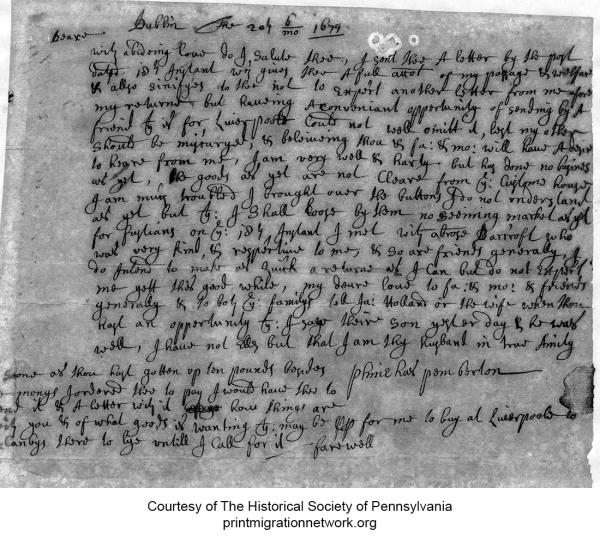 Deare Dublin The 20th 6/mo 1679
with abideing love do I salute thee, I sent thee A letter by the post
dated 18th Instant wch gives thee A full accot of my passage & welfare
& allso signifyes to thee not to Expect another letter from me afore
my returne but haveing A conveniant oppertunity of sending by A
friend yt is for Liverpoole Could not well omitt it, lest my other
should be miscaryed, & beleiveing thou & fa: & mo: will have A desire
to heare from me, I am very well & harty but has done no business
as yet, the goods as yet are not Cleare from ye Custome house,
I am much troubled I brought over the buttons I do not understand
as yet but yt I shall loose by them no seeming market as yet
for fustians on ye: 18th Instant I met with abrose Barcroft who
was very kind, & respective to me, & so are friends generally, I
do Intend to make as Quick a returne as I Can but do not Expect
me yett this good while, my deare love to fa: & mo: & friends
generally & to both ye: familys tell Ja: Holland or the wife when thou
hast an oppertunity yt: I saw theire son yesterday & he was
well, I have not Els but that I am thy husband in true Amity
soone as thou hast gotten up ten pounds besides Phinehas pemberton
monys I ordered thee to pay I would have thee to
it & A letter with it how things are
with you & of what goods is wanting yt: may be for me to buy at Liverpoole to
there to lye untill I Call for it farewell
Courtesy of The Historical Society of Pennsylvania
printmigrationnetwork.org